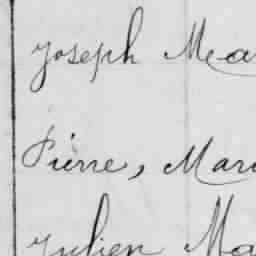 Joseph Mea
Pierre, Mari
Julien Ma